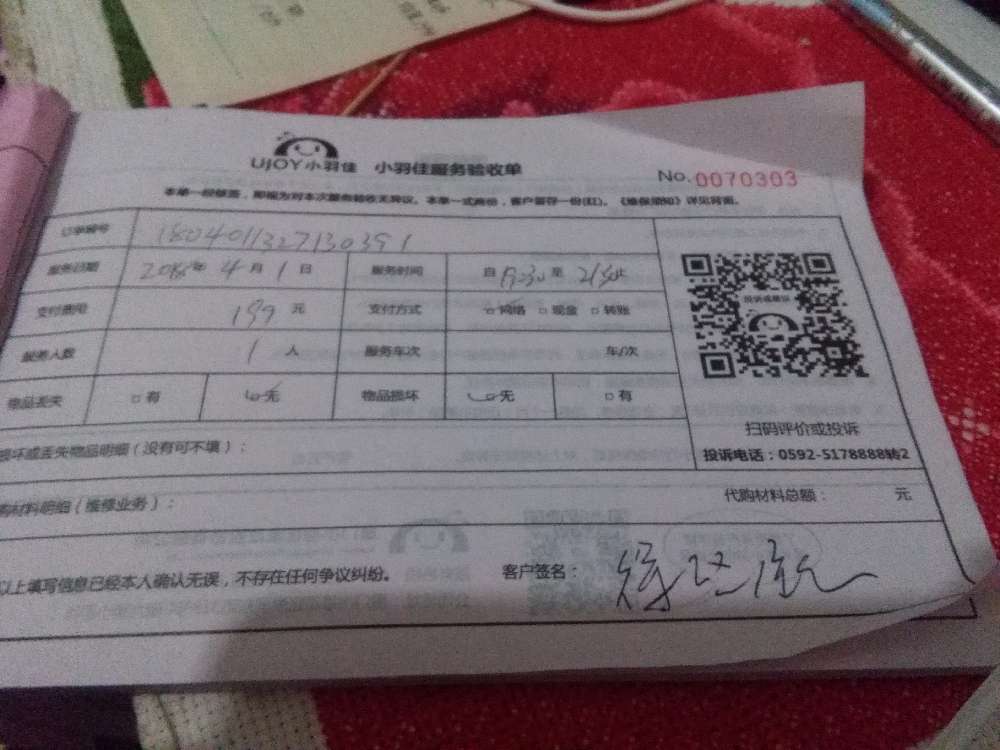 UJOY小羽佳 小羽佳服务验收单
No. 0070303
本单一经签, 即视为对本次服务验收无异议。本单一式两份，客户留存一份(红)。《维保须知》详见背面。
订单编号 1804011327130391
服务日期 2018年 4月 1日 服务时间 自 至
支付费用 199 元 支付方式 网络 □现金 □转账
服务人数 1 人 服务车次 车/次
物品丢失 □有 □无 物品损坏 □无 □有
投诉或建议
扫码评价或投诉
投诉电话：0592-5178888转2
损坏或丢失物品明细（没有可不填）：
购材料明细（维修业务）： 代购材料总额： 元
以上填写信息已经本人确认无误，不存在任何争议纠纷。 客户签名：